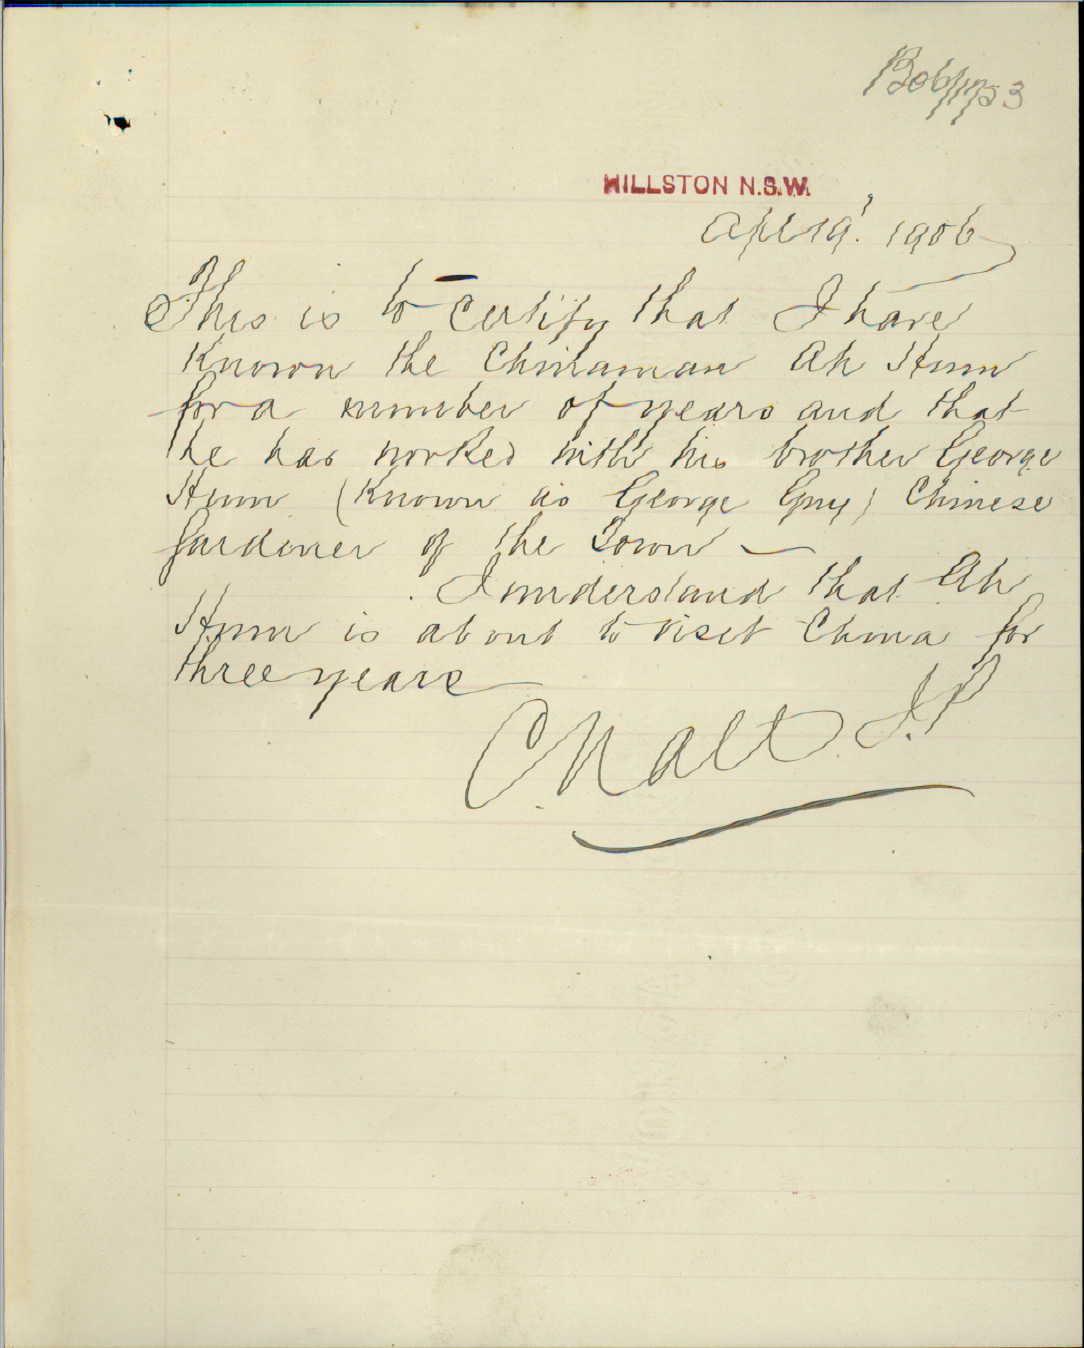 B06/1753
HILLSTON N.S.W.
April 19. 1906
This is to certify that I have
Known the Chinaman Ah Hunn
for a number of years and that
he has worked with his brother George
Hunn (Known as George Guy) Chinese
Gardener of the Town
I understand that Ah
Hunn is about to visit China for
three years
J.P